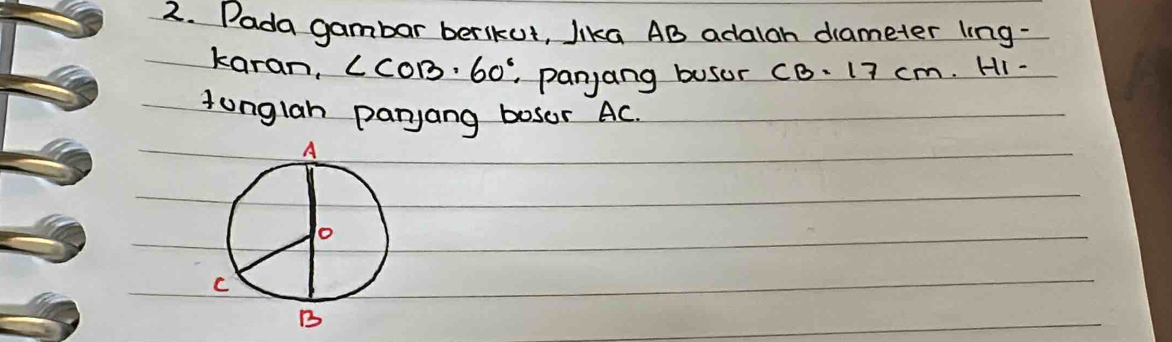 2. Pada gambar berikut, Jika AB adalah diameter ling-
karan, ∠COB = 60°, panjang busur CB = 17 cm. Hi-
tunglah panjang busur AC.
A
O
C
B